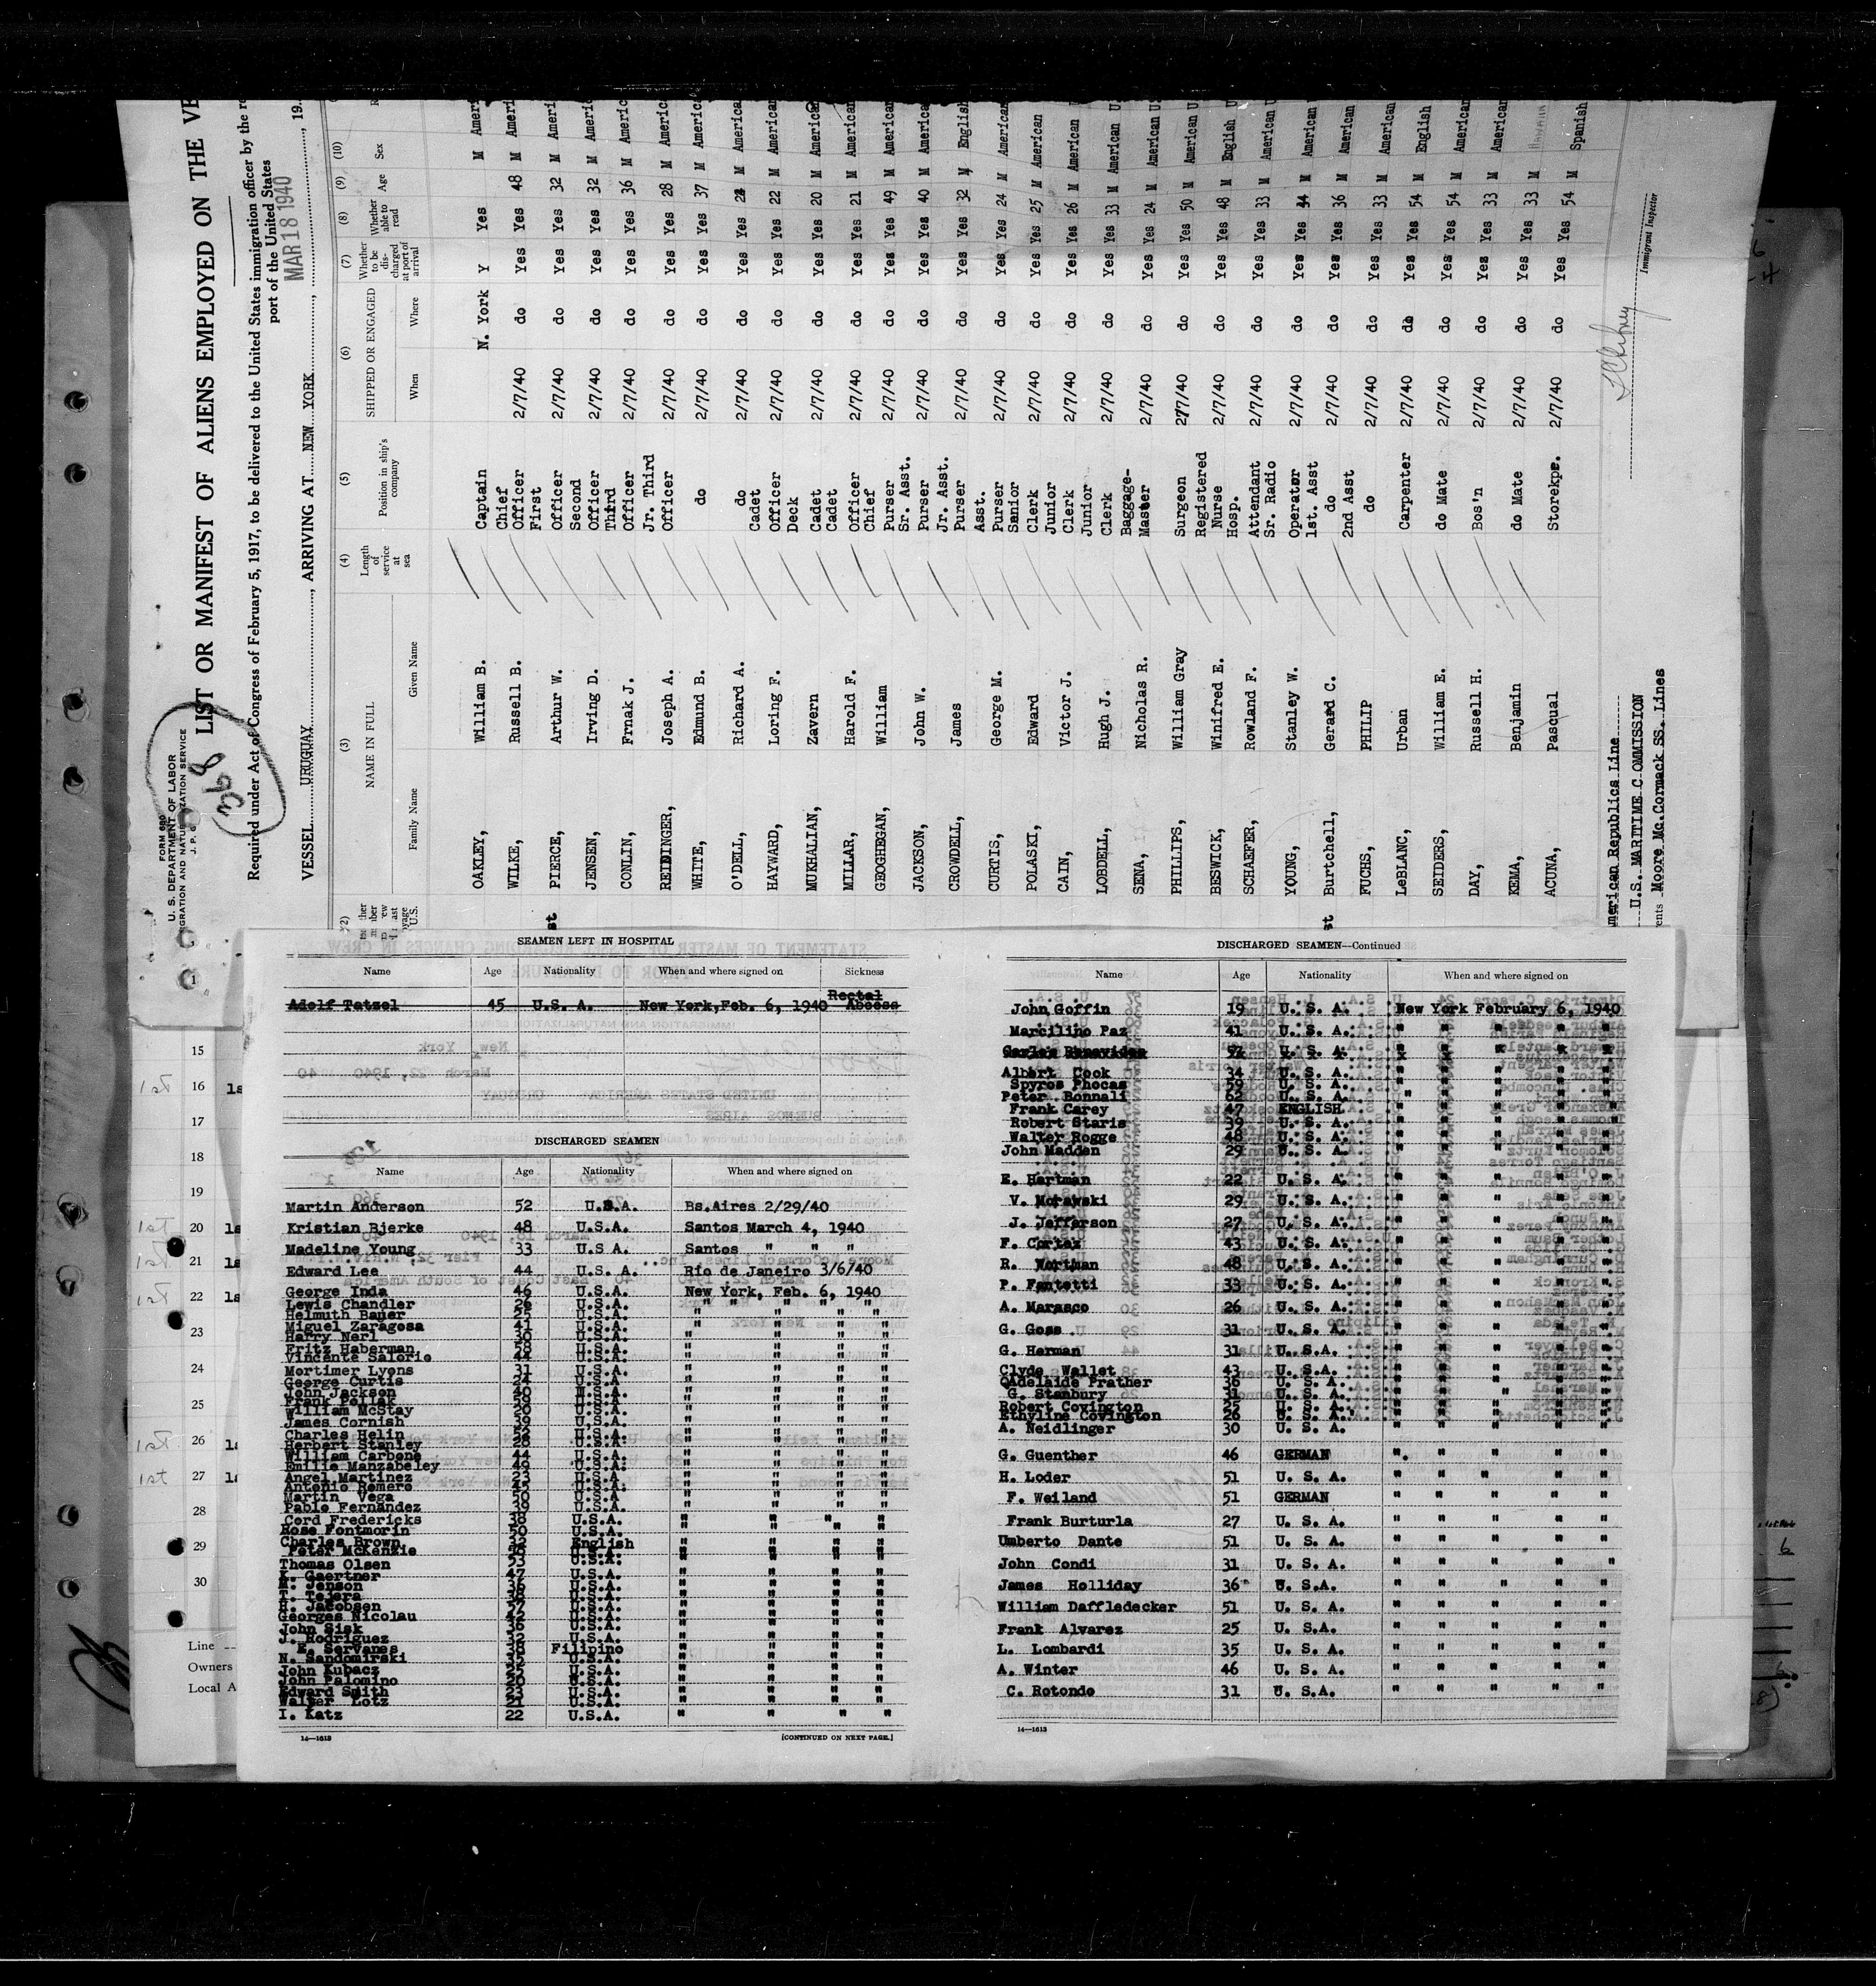 FORM 680
U. S. DEPARTMENT OF LABOR
IGRATION AND NATURALIZATION SERVICE
LIST OR MANIFEST OF ALIENS EMPLOYED ON THE VE
Required under Act of Congress of February 5, 1917, to be delivered to the United States immigration officer by the re
port of the United States
MAR 18 1940
VESSEL URUGUAY, ARRIVING AT NEW YORK, , 19
(3) (4) (5) (6) (7) (8) (9) (10)
NAME IN FULL Length of service at sea Position in ship's company SHIPPED OR ENGAGED Whether to be discharged at port of arrival Whether able to read Age Sex R
Family Name Given Name When Where
OAKLEY, William B. Captain N. York Y Yes M Ameri
WILKE, Russell B. Chief Officer 2/7/40 do Yes Yes 48 M Ameri
PIERCE, Arthur W. First Officer 2/7/40 do Yes Yes 32 M Ameri
JENSEN, Irving D. Second Officer 2/7/40 do Yes Yes 32 M Americ
CONLIN, Frnak J. Third Officer 2/7/40 do Yes Yes 36 M Americ
REIDINGER, Joseph A. Jr. Third Officer 2/7/40 do Yes Yes 28 M America
WHITE, Edmund B. do 2/7/40 do Yes Yes 37 M America
O'DELL, Richard A. do 2/7/40 do Yes Yes M American
HAYWARD, Loring F. Cadet Officer 2/7/40 do Yes Yes 22 M American
MUKHALIAN, Zavern Deck Cadet 2/7/40 do Yes Yes 20 M American
MILLAR, Harold F. Cadet Officer 2/7/40 do Yes Yes 21 M American
GEOGHEGAN, William Chief Purser 2/7/40 do Yes Yes 49 M American
JACKSON, John W. Sr. Asst. Purser 2/7/40 do Yes Yes 40 M American
CROWDELL, James Jr. Asst. Purser 2/7/40 do Yes Yes 32 M English
CURTIS, George M. Asst. Purser 2/7/40 do Yes Yes 24 M American
POLASKI, Edward Senior Clerk 2/7/40 do Yes Yes 25 M American
CAIN, Victor J. Junior Clerk 2/7/40 do Yes Yes 26 M American U
LOBDELL, Hugh J. Junior Clerk 2/7/40 do Yes Yes 33 M American U.
SENA, Nicholas R. Baggage-Master 2/7/40 do Yes Yes 24 M American US
PHILLIPS, William Gray Surgeon 2/7/40 do Yes Yes 50 M American U.
BESWICK, Winifred E. Registered Nurse 2/7/40 do Yes Yes 48 M English U
SCHAEFER, Rowland F. Hosp. Attendant 2/7/40 do Yes Yes 33 M American U
YOUNG, Stanley W. Sr. Radio Operator 2/7/40 do Yes Yes M American
Burtchell, Gerard C. 1st. Asst do 2/7/40 do Yes Yes 36 M American
FUCHS, PHILIP 2nd Asst do 2/7/40 do Yes Yes 33 M American
LeBLANC, Urban Carpenter 2/7/40 do Yes Yes 54 M English
SEIDERS, William E. do Mate 2/7/40 do Yes Yes 54 M American
DAY, Russell H. Bos'n 2/7/40 do Yes Yes 33 M American
KEMA, Benjamin do Mate 2/7/40 do Yes Yes 33 M
ACUNA, Pascual Storekpr. 2/7/40 do Yes Yes 54 M Spanish
merican Republics Line
U.S. MARITIME COMMISSION
ents Moore Mc.Cormack SS. Lines
Immigrant Inspector
SEAMEN LEFT IN HOSPITAL
Name Age Nationality When and where signed on Sickness
Adolf Tatzel 45 U.S. A. New York, Feb. 6, 1940 Rectal Abcess
DISCHARGED SEAMEN
Name Age Nationality When and where signed on
Martin Anderson 52 U.S.A. Bs.Aires 2/29/40
Kristian Bjerke 48 U.S.A. Santos March 4, 1940
Madeline Young 33 U.S A. Santos " " "
Edward Lee 44 U.S. A. Rio de Janeiro 3/6/40
George Inda 46 U.S.A. New York, Feb. 6, 1940
Lewis Chandler 26 U.S.A. " " " " "
Helmuth Bauer 25 U.S.A. " " "
Miguel Zaragosa 41 U.S.A. " " "
Harry Nerl 30 U.S.A. " " "
Fritz Haberman 58 U.S.A. " " "
Vincente Salorio 44 U.S.A. " " "
Mortimer Lyons 31 U.S.A. " " "
George Curtis 24 U.S.A " " "
John Jackson 40 U.S.A. " " "
Frank Pollak 59 U.S.A. " " "
William McStay 20 U.S.A. " " "
James Cornish 39 U.S.A. " " "
Charles Helin 52 U.S.A. " " "
Herbert Stanley 28 U.S.A. " " "
William Carbone 44 U.S.A. " " "
Emilie Manzabeley 49 U.S.A. " " "
Angel Martinez 23 U.S.A " " "
Antonio Romero 45 U.S.A. " " "
Martin Vega 50 U.S.A " " "
Pablo Fernandez 39 U.S.A. " " "
Cord Fredericks 38 U.S.A. " " "
Rose Fontmorin 50 U.S.A. " " "
Charles Brown 32 English " " "
Peter McKenzie U.S.A. " " "
Thomas Olsen 53 U.S.A. " " "
K. Gaertner 47 U.S.A. " " "
M. Jenson 36 U.S.A. " " "
T. Tejera 38 U.S.A. " " "
H. Jacobsen 57 U.S.A. " " "
Georges Nicolau 42 U.S.A. " " "
John Sisk 36 U.S.A. " " "
J. Rodriguez 32 U.S.A. " " "
E. Servanes 38 Filipino " " "
N. Sandomirski 35 U.S.A. " " "
John Kubacz 25 U.S.A. " " "
John Palomino 20 U.S.A. " " "
Edward Smith 23 U.S.A. " " "
Walter Lotz 21 U.S.A. " " "
I. Katz 22 U.S.A. " " " "
14—1613 [CONTINUED ON NEXT PAGE.]
DISCHARGED SEAMEN—Continued
Name Age Nationality When and where signed on
John Goffin 19 U. S. A. New York February 6, 1940
Marcilino Paz 41 U. S. A. " " " " "
Albert Cook 34 U. S. A. " " " " "
Spyros Phocas 59 U. S. A. " " " " "
Peter Bonnali 62 U. S. A. " " " " "
Frank Carey 47 ENGLISH " " " " "
Robert Staris 39 U. S. A. " " " " "
Walter Rogge 48 U. S. A. " " " " "
John Madden 29 U. S. A. " " " " "
E. Hartman 22 U. S. A. " " " " "
V. Morawski 29 U. S. A. " " " " "
J. Jefferson 27 U. S. A. " " " " "
F. Cortez 43 U. S. A. " " " " "
R. Wortman 48 U. S. A. " " " " "
P. Fantetti 33 U. S. A. " " " " "
A. Marasco 26 U. S. A. " " " " "
G. Goss 31 U. S. A. " " " " "
G. Herman 31 U. S.A. " " " " "
Clyde Wallet 43 U. S.A. " " " " "
Adelaide Prather 36 U. S. A. " " " " "
G. Stanbury 31 U. S. A. " " " " "
Robert Covington 25 U. S. A. " " " " "
Ethyline Covington 26 U. S. A. " " " " "
A. Neidlinger 30 U. S. A. " " " " "
G. Guenther 46 GERMAN " " " " "
H. Loder 51 U. S. A. " " " " "
F. Weiland 51 GERMAN " " " " "
Frank Burturla 27 U. S. A. " " " " "
Umberto Dante 51 U. S. A. " " " " "
John Condi 31 U. S. A. " " " " "
James Holliday 36 U. S.A. " " " " "
William Daffledecker 51 U. S. A. " " " " "
Frank Alvarez 25 U. S.A. " " " " "
L. Lombardi 35 U. S. A. " " " " "
A. Winter 46 U. S. A. " " " " "
C. Rotondo 31 U. S.A. " " " " "
14—1613
15
1st 16 1s
17
18
19
1st 20 1s
1st 21 1s
1st 22 1s
23
24
25
1st 26 1s
1st 27 1s
28
29
30
Line
Owners
Local A